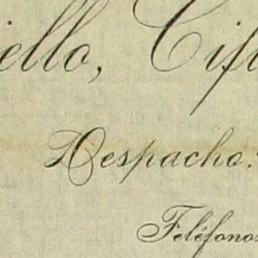 iello, Cifu
Despacho:
Teléfono: